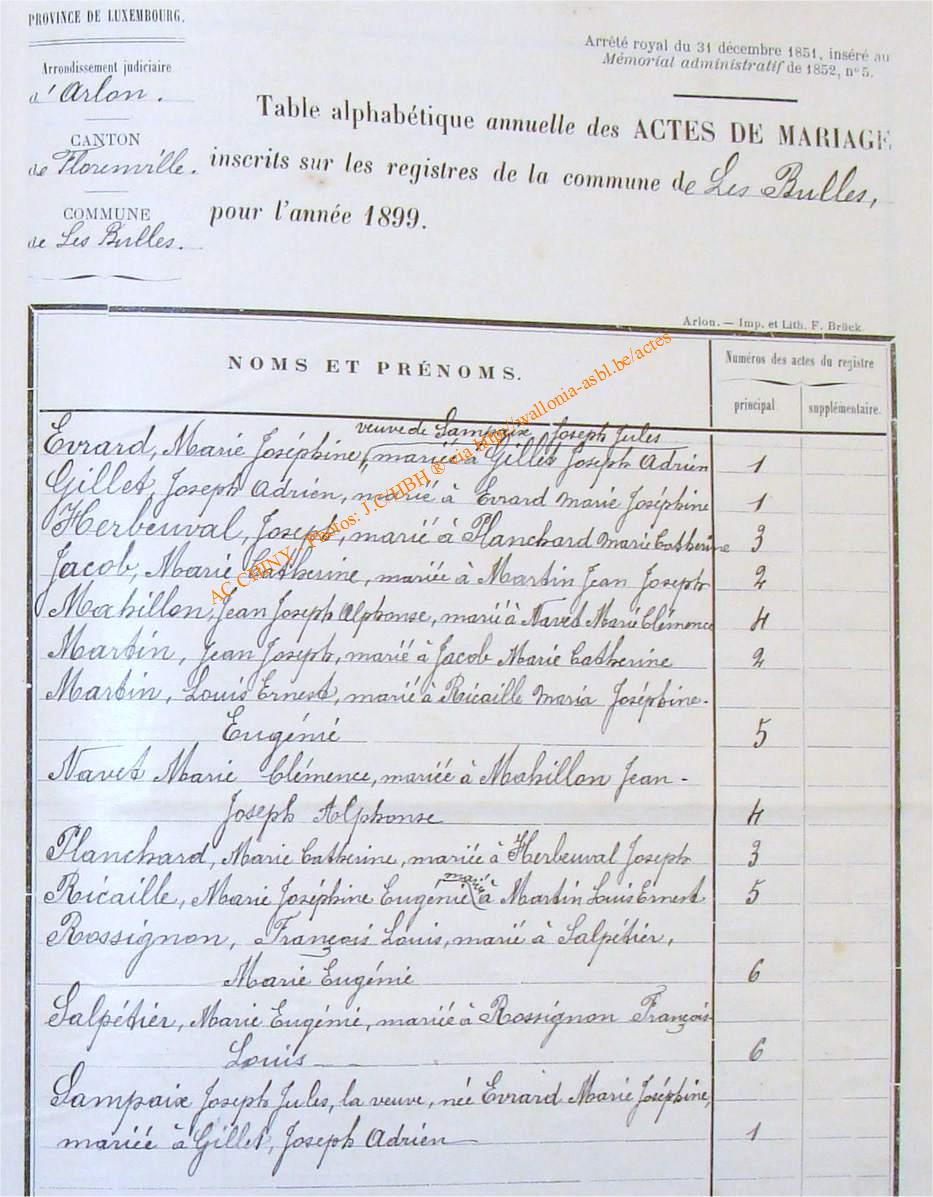 PROVINCE DE LUXEMBOURG.
Arrondissement judiciaire
d'Arlon.
CANTON
de Florenville.
COMMUNE
de Les Bulles.
Arrêté royal du 31 décembre 1851, inséré au
Mémorial administratif de 1852, n° 5.
Table alphabétique annuelle des ACTES DE MARIAGE
inscrits sur les registres de la commune de Les Bulles,
pour l'année 1899.
Arlon. — Imp. et Lith. F. Brück.
NOMS ET PRÉNOMS.
Numéros des actes du registre
principal
supplémentaire.
veuve de Sampaix Joseph Jules
Evrard, Marie Joséphine, mariée à Gillet Joseph Adrien 1
Gillet, Joseph Adrien, marié à Evrard Marie Joséphine 1
Herbeuval, Joseph, marié à Planchard Marie Catherine 3
Jacob, Marie Catherine, mariée à Martin Jean Joseph 2
Mahillon, Jean Joseph Alphonse, marié à Navet Marie Clémence 4
Martin, Jean Joseph, marié à Jacob Marie Catherine 2
Martin, Louis Ernest, marié à Ricaille Maria Joséphine-
Eugénie 5
Navet Marie Clémence, mariée à Mahillon Jean-
Joseph Alphonse 4
Planchard, Marie Catherine, mariée à Herbeuval Joseph 3
Ricaille, Marie Joséphine Eugénie mariée à Martin Louis Ernest 5
Rossignon, François Louis, marié à Salpétier,
Marie Eugénie 6
Salpétier, Marie Eugénie, mariée à Rossignon François-
Louis 6
Sampaix Joseph Jules, la veuve, née Evrard Marie Joséphine,
mariée à Gillet, Joseph Adrien 1
AC CHINY - Photos: J.C/HBH ® via http://wallonia-asbl.be/actes